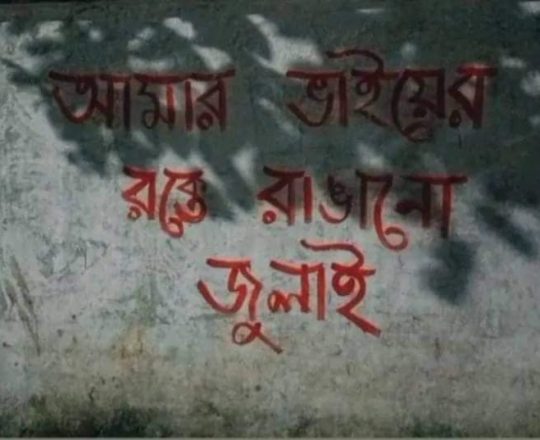 আমার ভাইয়ের
রক্তে রাঙানো
জুলাই